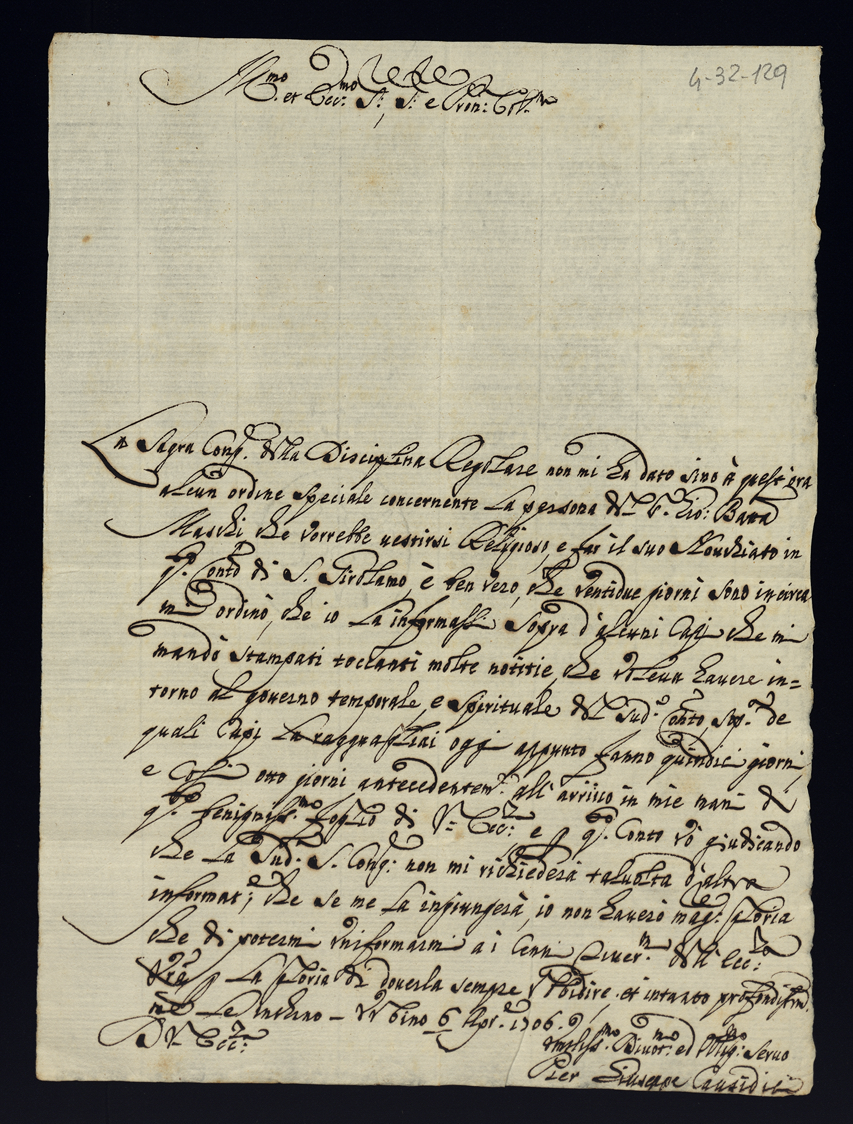 4-32-129
Ill.mo et Ecc.mo S.r, S.r e Pron: Col.mo
La Sagra Cong.e della Disciplina Regolare non mi ha dato sino à quest'ora
alcun ordine speciale concernente la persona del Gio: Batta
Maschi che vorrebbe vestirsi Religioso, e far il suo Noviziato in
q.to Conto di S. Girolamo, è ben vero, che ventidue giorni sono in circa
mi ordinò, che io la informassi sopra d'alcuni Capi che mi
mandò stampati toccanti molte notitie, che voleva havere in=
torno al governo temporale, e spirituale del sud.o Conto, sop.a de
quali Capi la ragguagliai oggi appunto fanno quindici giorni,
e così otto giorni antecedentem.te all'arrivo in mie mani di
q.to benigniss.mo foglio di V.ra Ecc.za e p q.to Conto vò giudicando
che la Sud.a S. Cong.e non mi richiederà talvolta d'altra
informat.e; che se me la ingiungerà, io non haverò mag.r gloria
che di potermi uniformarmi a i Cenni river.mi dell'Ecc.za
Vra p la gloria di doverla sempre Ubbidire, et intanto profondissim.
le Inchino - Urbino 6 Apr.e 1706
D V.ra Ecc.za
Umiliss.mo Divot.mo ed Oblig.mo Servo
Pier Giuseppe Causidici